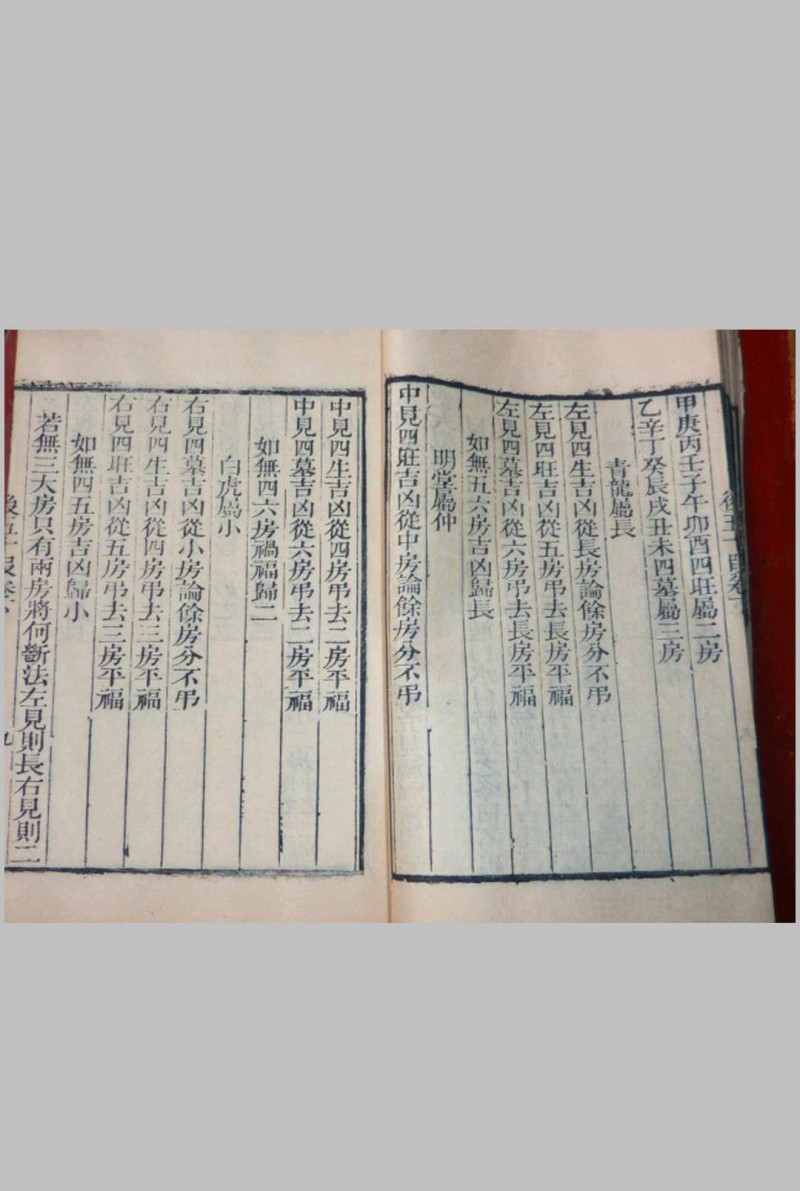 甲庚丙壬子午卯酉四旺屬二房
乙辛丁癸辰戌丑未四墓屬三房
青龍屬長
左見四生吉凶從長房論餘房分不弔
左見四旺吉凶從五房弔去長房平福
左見四墓吉凶從六房弔去長房平福
如無五六房吉凶歸長
明堂屬仲
中見四旺吉凶從中房論餘房分不弔
中見四生吉凶從四房弔去二房平福
中見四墓吉凶從六房弔去二房平福
如無四六房禍福歸二
白虎屬小
右見四墓吉凶從小房論餘房分不弔
右見四生吉凶從四房弔去三房平福
右見四旺吉凶從五房弔去三房平福
如無四五房吉凶歸小
若無三大房只有兩房將何斷法左見則長右見則二